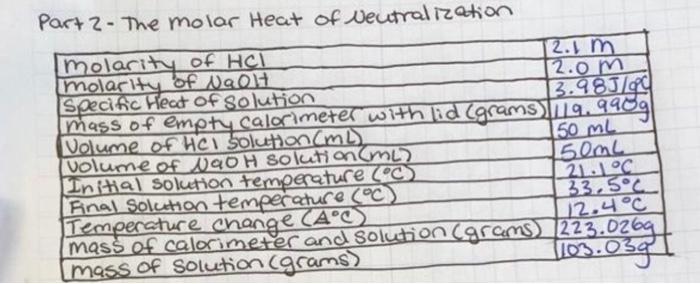 Part 2 - The Molar Heat of Neutralization
molarity of HCl 2.1 M
molarity of NaOH 2.0 M
specific Heat of Solution 3.98 J/g°C
mass of empty calorimeter with lid (grams) 119.990g
Volume of HCl Solution (mL) 50 mL
volume of NaOH solution (mL) 50mL
Initial solution temperature (°C) 21.1°C
Final Solution temperature (°C) 33.5°C
Temperature change (Δ°C) 12.4°C
mass of calorimeter and solution (grams) 223.026g
mass of solution (grams) 103.03g